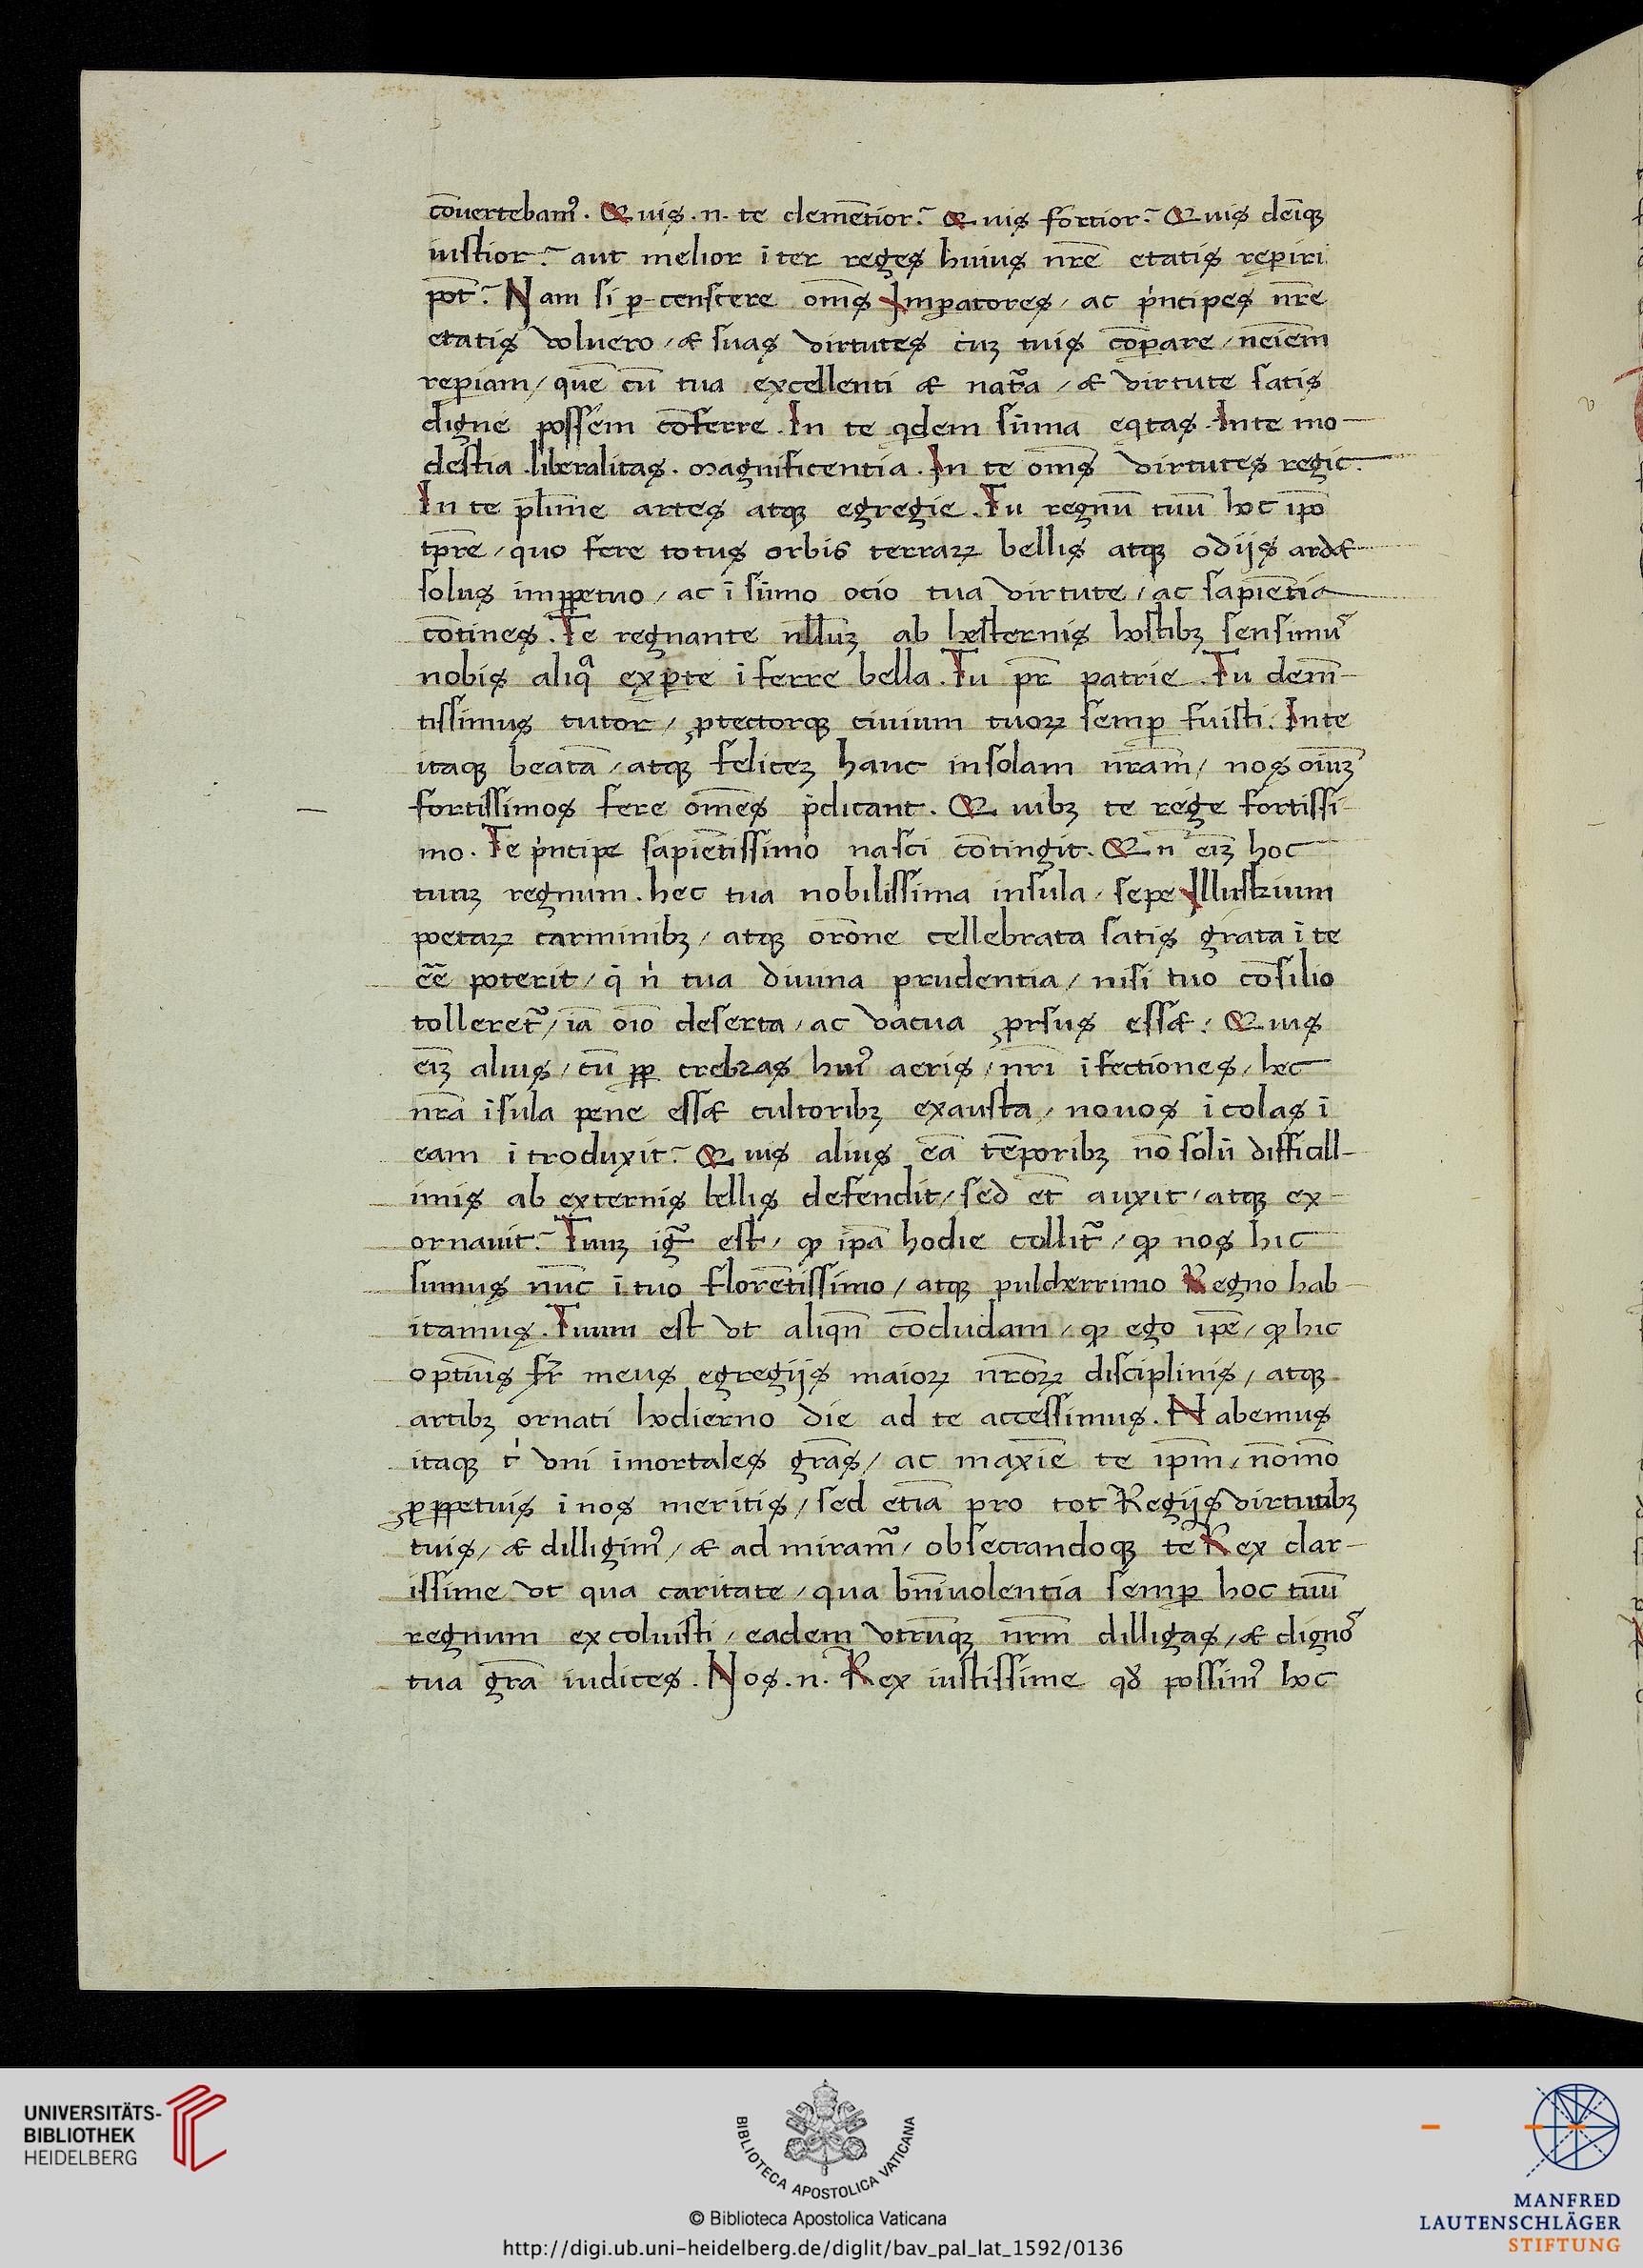 cōuertebamꝰ. Quis .n. te clemētior? Quis fortior? Quis deīqꝫ
iustior? aut melior īter reges huius nr̄e etatis reperiri
pōt? Nam si p̲censcere om̄s Imp̲atores, ac pͥncipes nr̄e
etatis voluero, & suas virtutes cuꝫ tuis cōp̲are, neīem̄
rep̲iam, quē cū tua excellenti & nat̃a, & virtute satis
digne possem cōferre. In te qͥdem sūma eqͥtas. In te mo-
destia. liberalitas. magnificentia. In te om̄s virtutes regie.
In te pl̄ime artes atqꝫ egregie. Tu regnū tuū hoc ip̄o
tp̄re, quo fere totus orbis terraꝝ bellis atqꝫ odijs ard&
solus imp̲petuo, ac ī sūmo ocio tua virtute, ac sapiētia
cōtines. Te regnante nll̄uꝫ ab hesternis hostibꝫ sensimꝰ
nobis aliqᵃ ex p̲te īferre bella. Tu pr̄ patrie. Tu clem̄-
tissimus tutor, ꝓtectorqꝫ ciuium tuoꝝ semp̲ fuisti. In te
itaqꝫ beatā, atqꝫ feliceꝫ hanc insolam nr̄am, nos oīuꝫ
fortissimos fere om̄es p̄dicant. Quibꝫ te rege fortissi-
mo. Te pͥncipe sapiētissimo nasci cōtingit. Qn̄ eīꝫ hoc
tuuꝫ regnum. hec tua nobilissima insula, sepe Illustrium
poetaꝝ carminibꝫ, atqꝫ orōne cellebrata satis grata ī te
ēē poterit, q̄ nͥ tua diuina prudentia, nisi tuo cōsilio
tolleret̃, iā oīo deserta, ac vacua ꝓrsus ess&. Quis
eīꝫ alius, cū p̲p̲ crebras huiꝰ aeris, nr̄i īfectiones, hec
nr̄a īsula pene ess& cultoribꝫ exausta, nouos īcolas ī
eam ītroduxit? Quis alius eā tēporibꝫ nō solū difficill-
imis ab externis bellis defendit, sed et̄ auxit, atqꝫ ex-
ornauit? Tuuꝫ ig̃ est, qꝫ ip̄a hodie collit̃, qꝫ nos hic
sumus nūc ī tuo florētissimo, atqꝫ pulcherrimo Regno hab-
itamus. Tuum est vt aliqn̄ cōcludam, qꝫ ego ip̄e, qꝫ hic
optīus fr̄ meus egregijs maioꝝ nr̄oꝝ disciplinis, atqꝫ
artibꝫ ornati hodierno die ad te accessimus. Habemus
itaqꝫ tͥ vni īmortales gr̄as, ac maxīe te ip̄m, nōmō
ꝓ p̲petuis ī nos meritis, sed etiā pro tot Regijs virtutibꝫ
tuis, & dilligimꝰ, & ad miram̃, obsecrandoqꝫ te Rex clar-
issime vt qua caritate, qua bn̄iuolentia semp̲ hoc tuū
regnum excoluisti, eadem vtrūqꝫ nr̄m dilligas, & dignoˢ
tua gr̄a iudices. Nos .n. Rex iustissime qđ possimꝰ hoc
UNIVERSITÄTS-
BIBLIOTHEK
HEIDELBERG
BIBLIOTECA APOSTOLICA VATICANA
© Biblioteca Apostolica Vaticana
http://digi.ub.uni-heidelberg.de/diglit/bav_pal_lat_1592/0136
MANFRED
LAUTENSCHLÄGER
STIFTUNG